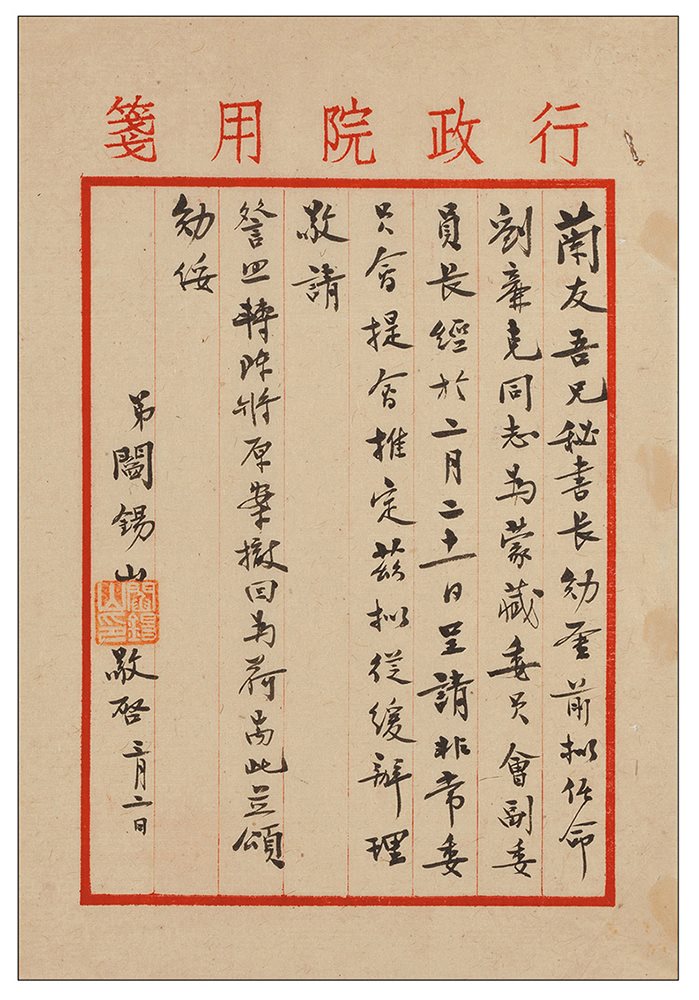 行政院用箋
蘭友吾兄秘書長勛鑒前拟任命
劉廉克同志為蒙藏委員會副委
員長經於二月二十一日呈請非常委
員會提會推定茲拟從緩辦理
敬請
詧照轉陳將原案撤回為荷耑此並頌
勛綏
弟閻錫山敬啓三月二日
閻錫山印